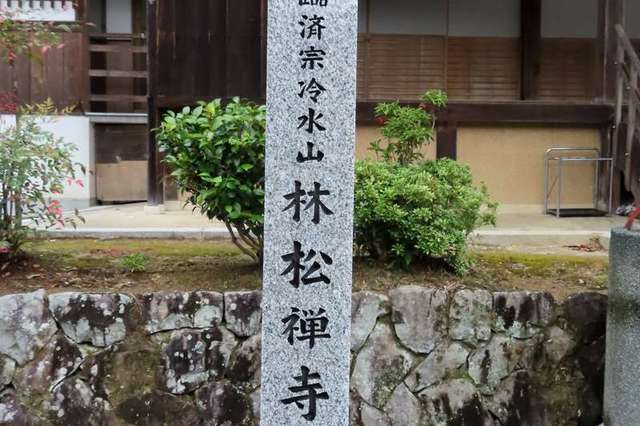 臨済宗冷水山
林松禅寺